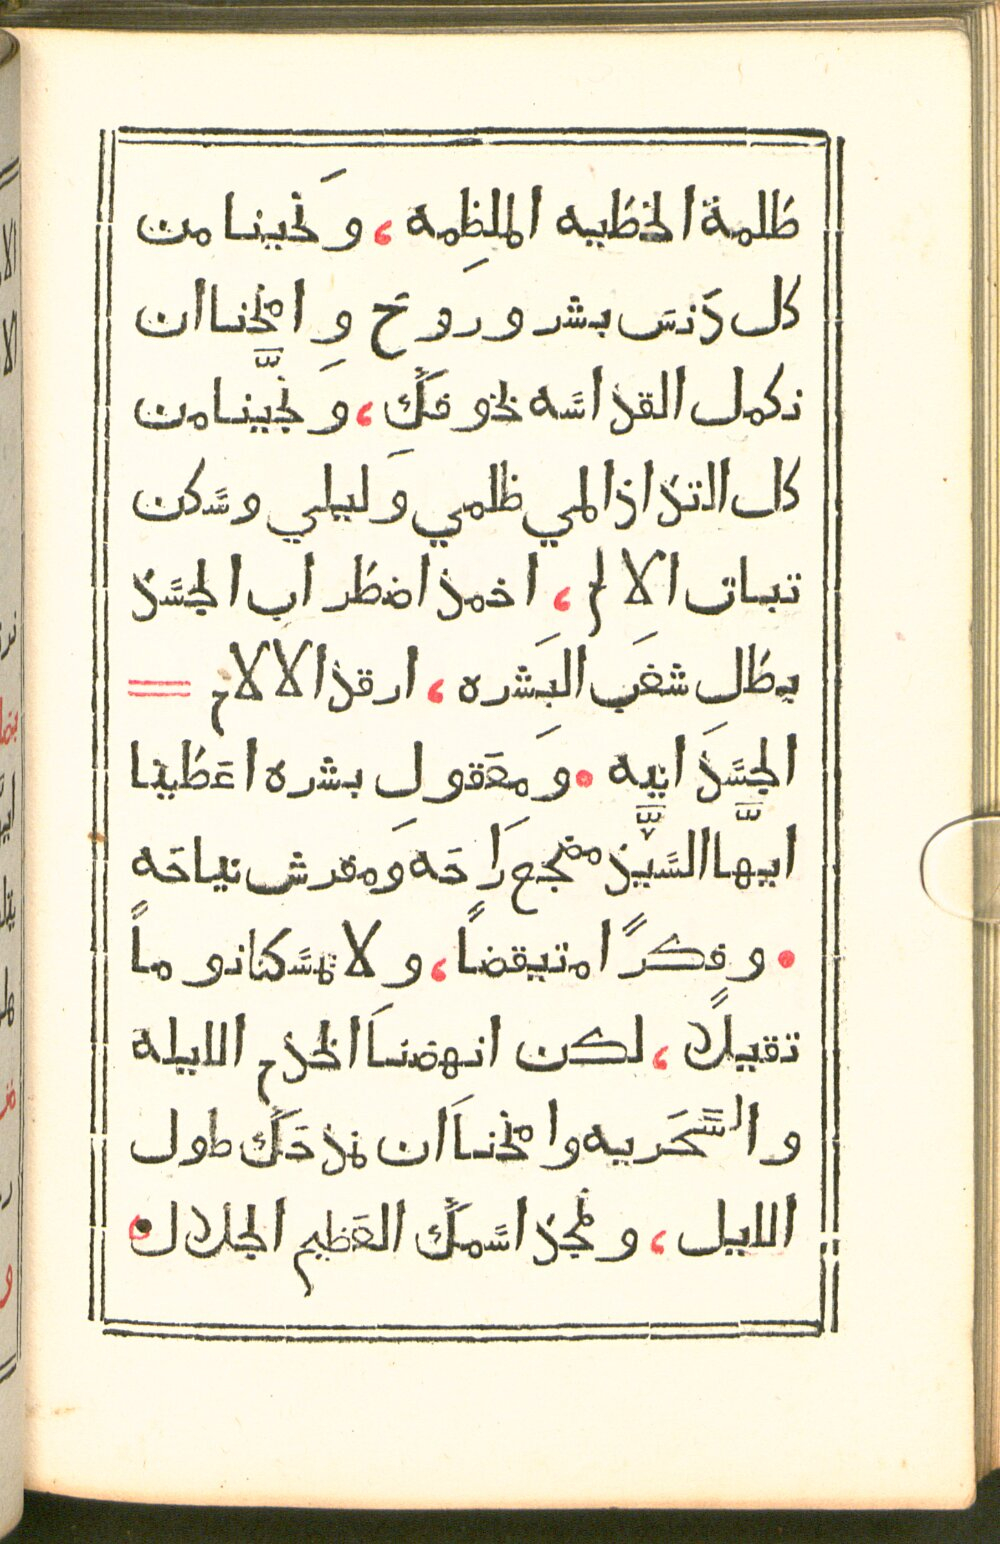 ظلمة الخطيه المظلمه ، ونجينا من
كل دنس بشر وروح وامنحنا ان
نكمل القداسه بخوفك ، ونجينا من
كل التذاذ المي ظلمي وليلي وسكن
تباث الالم ، اخمذ اضطراب الجسد
بطل شغب البشره ، ارقد الالام
الجسدانيه • وبعقول بشره اعطينا
ايها السيد مضجع راحه ومفرش نياحه
• وفكرًا متيقضاً ، ولا تمسكنا نوماً
تقيلاً ، لكن انهضنا لخدم الليله
والسحريه وامنحنا ان نمدحك طول
الليل ، ونمجد اسمك العظيم الجلال